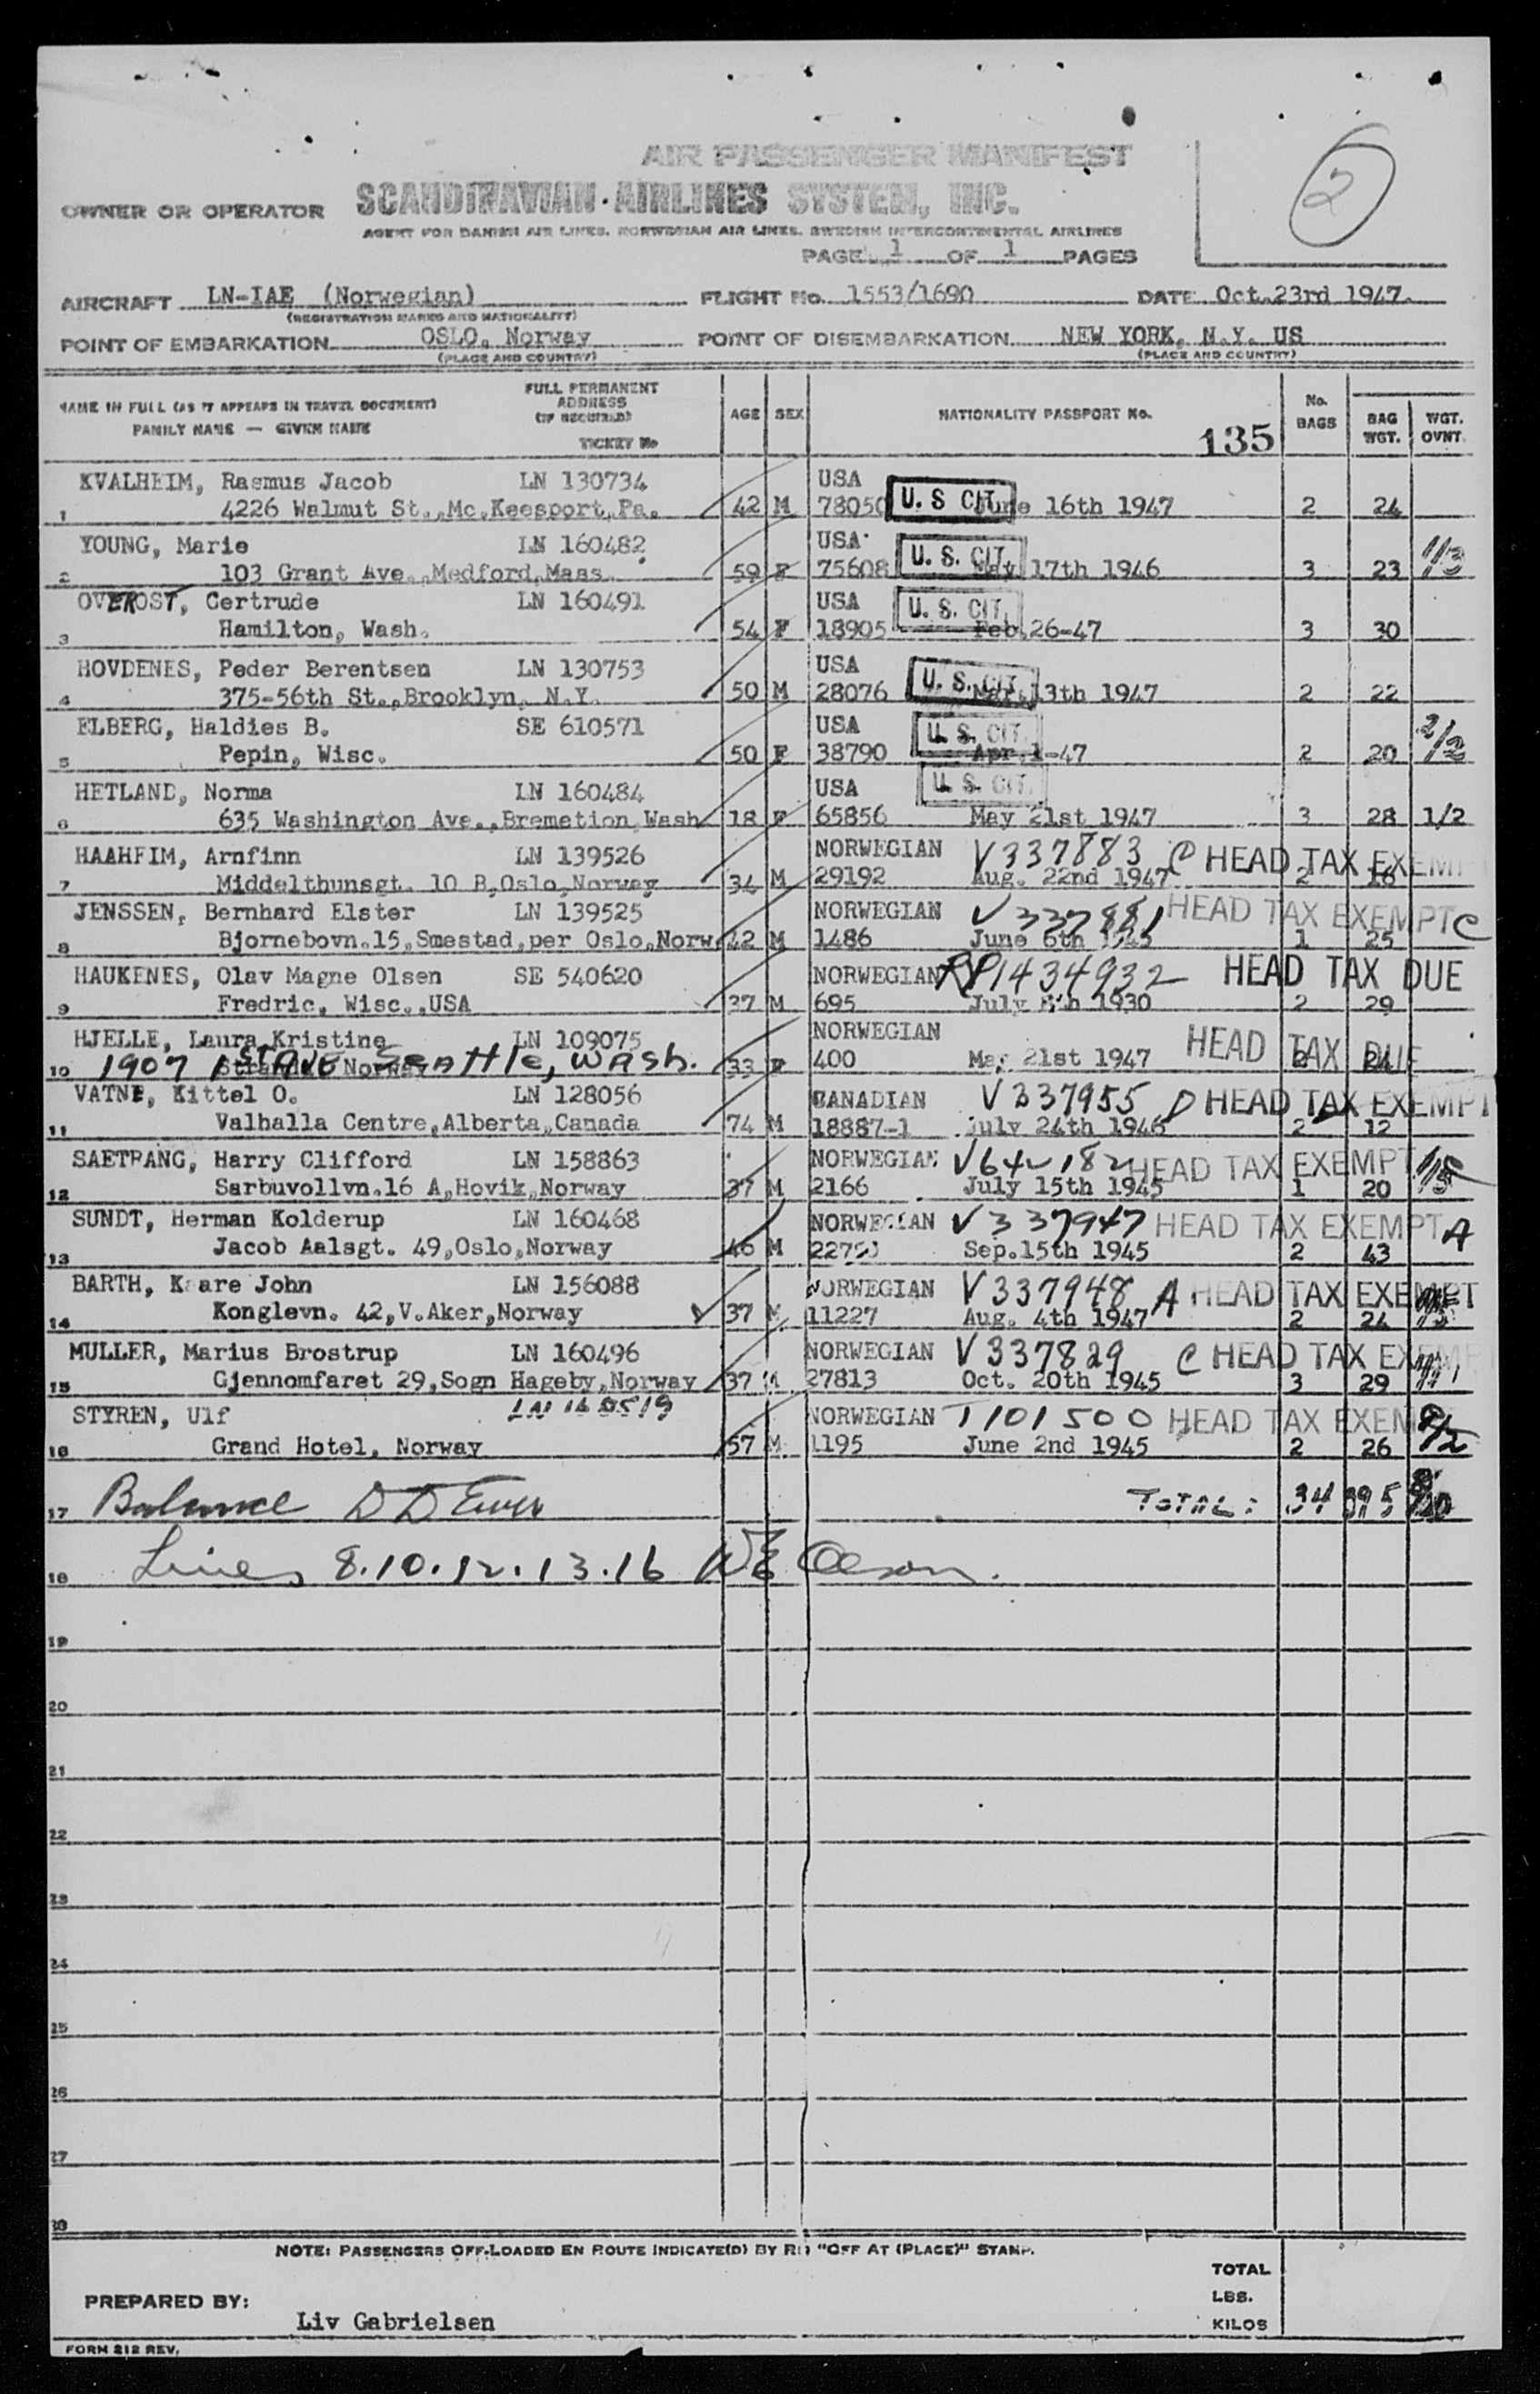 AIR PASSENGER MANIFEST
2
OWNER OR OPERATOR SCANDINAVIAN AIRLINES SYSTEM, INC.
AGENT FOR DANISH AIR LINES. NORWEGIAN AIR LINES. SWEDISH INTERCONTINENTAL AIRLINES
PAGE 1 OF 1 PAGES
AIRCRAFT LN-IAE (Norwegian) FLIGHT No. 1553/1690 DATE Oct.23rd 1947.
(REGISTRATION MARKS AND NATIONALITY)
POINT OF EMBARKATION OSLO, Norway POINT OF DISEMBARKATION NEW YORK, N.Y. US
(PLACE AND COUNTRY) (PLACE AND COUNTRY)
NAME IN FULL (AS IT APPEARS IN TRAVEL DOCUMENT) FAMILY NAME — GIVEN NAME FULL PERMANENT ADDRESS (IF REQUIRED) TICKET No AGE SEX NATIONALITY PASSPORT No. 135 No. BAGS BAG WGT. WGT. OVNT.
KVALHEIM, Rasmus Jacob LN 130734 USA U. S CIT.
1 4226 Walmut St.,Mc.Keesport,Pa. 42 M 78050 June 16th 1947 2 24
YOUNG, Marie LN 160482 USA U. S. CIT. 1/3
2 103 Grant Ave.,Medford,Mass. 59 F 75608 May 17th 1946 3 23
OVEROST, Gertrude LN 160491 USA U. S. CIT.
3 Hamilton, Wash. 54 F 18905 Feb.26-47 3 30
HOVDENES, Peder Berentsen LN 130753 USA U. S. CIT.
4 375-56th St.,Brooklyn, N.Y. 50 M 28076 Mar.13th 1947 2 22
ELBERG, Haldies B. SE 610571 USA U. S. CIT. 2/2
5 Pepin, Wisc. 50 F 38790 Apr.1-47 2 20
HETLAND, Norma LN 160484 USA U. S. CIT.
6 635 Washington Ave.,Bremetion,Wash 18 F 65856 May 21st 1947 3 28 1/2
HAAHEIM, Arnfinn LN 139526 NORWEGIAN V337883 C HEAD TAX EXEMPT
7 Middelthunsgt. 10 B,Oslo,Norway 34 M 29192 Aug. 22nd 1947 2 18
JENSSEN, Bernhard Elster LN 139525 NORWEGIAN V337881 HEAD TAX EXEMPT C
8 Bjornebovn.15,Smestad,per Oslo,Norw. 42 M 1486 June 6th 1945 1 25
HAUKENES, Olav Magne Olsen SE 540620 NORWEGIAN RP1434932 HEAD TAX DUE
9 Fredric, Wisc.,USA 37 M 695 July 8th 1930 2 29
HJELLE, Laura Kristine LN 109075 NORWEGIAN HEAD TAX DUE
10 1907 1st Ave Seattle, Wash. 33 F 400 May 21st 1947 2 24
VATNE, Kittel O. LN 128056 CANADIAN V337955 D HEAD TAX EXEMPT
11 Valhalla Centre,Alberta,Canada 74 M 18887-1 July 24th 1946 2 12
SAETRANG, Harry Clifford LN 158863 NORWEGIAN V642182 HEAD TAX EXEMPT
12 Sarbuvollvn.16 A,Hovik,Norway 37 M 2166 July 15th 1945 1 20
SUNDT, Herman Kolderup LN 160468 NORWEGIAN V337947 HEAD TAX EXEMPT A
13 Jacob Aalsgt. 49,Oslo,Norway 46 M Sep.15th 1945 2 43
BARTH, Kaare John LN 156088 NORWEGIAN V337948 A HEAD TAX EXEMPT
14 Konglevn. 42,V.Aker,Norway 37 M 11227 Aug. 4th 1947 2 24
MULLER, Marius Brostrup LN 160496 NORWEGIAN V337829 C HEAD TAX EXEMPT
15 Gjennomfaret 29,Sogn Hageby,Norway 37 M 27813 Oct. 20th 1945 3 29
STYREN, Ulf LN 160519 NORWEGIAN T101500 HEAD TAX EXEMPT
16 Grand Hotel, Norway 57 M 1195 June 2nd 1945 2 26 2/2
17 Balance D D Ewer TOTAL: 34 395
18 Lines 8.10.12.13.16 WE Olson.
19
20
21
22
23
24
25
26
27
30
NOTE: PASSENGERS OFF-LOADED EN ROUTE INDICATE(D) BY RED "OFF AT (PLACE)" STAMP.
TOTAL
PREPARED BY: LBS.
Liv Gabrielsen KILOS
FORM 212 REV.